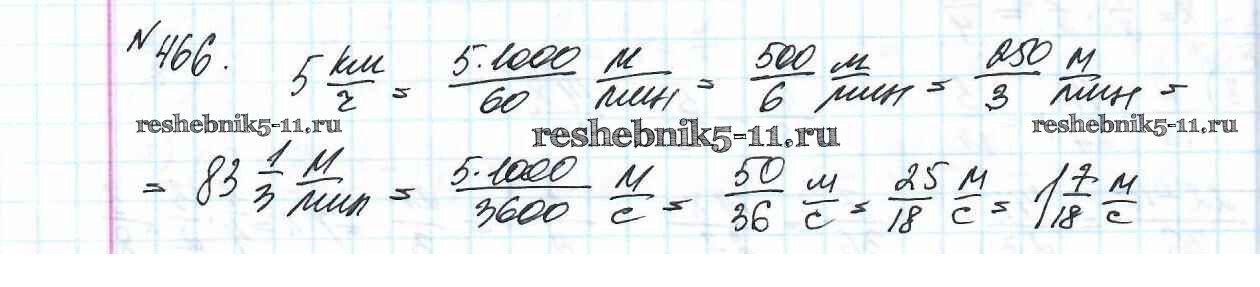 №466. 5 км/ч = 5·1000/60 м/мин = 500/6 м/мин = 250/3 м/мин =
reshebnik5-11.ru reshebnik5-11.ru reshebnik5-11.ru
= 83 1/3 м/мин = 5·1000/3600 м/с = 50/36 м/с = 25/18 м/с = 1 7/18 м/с